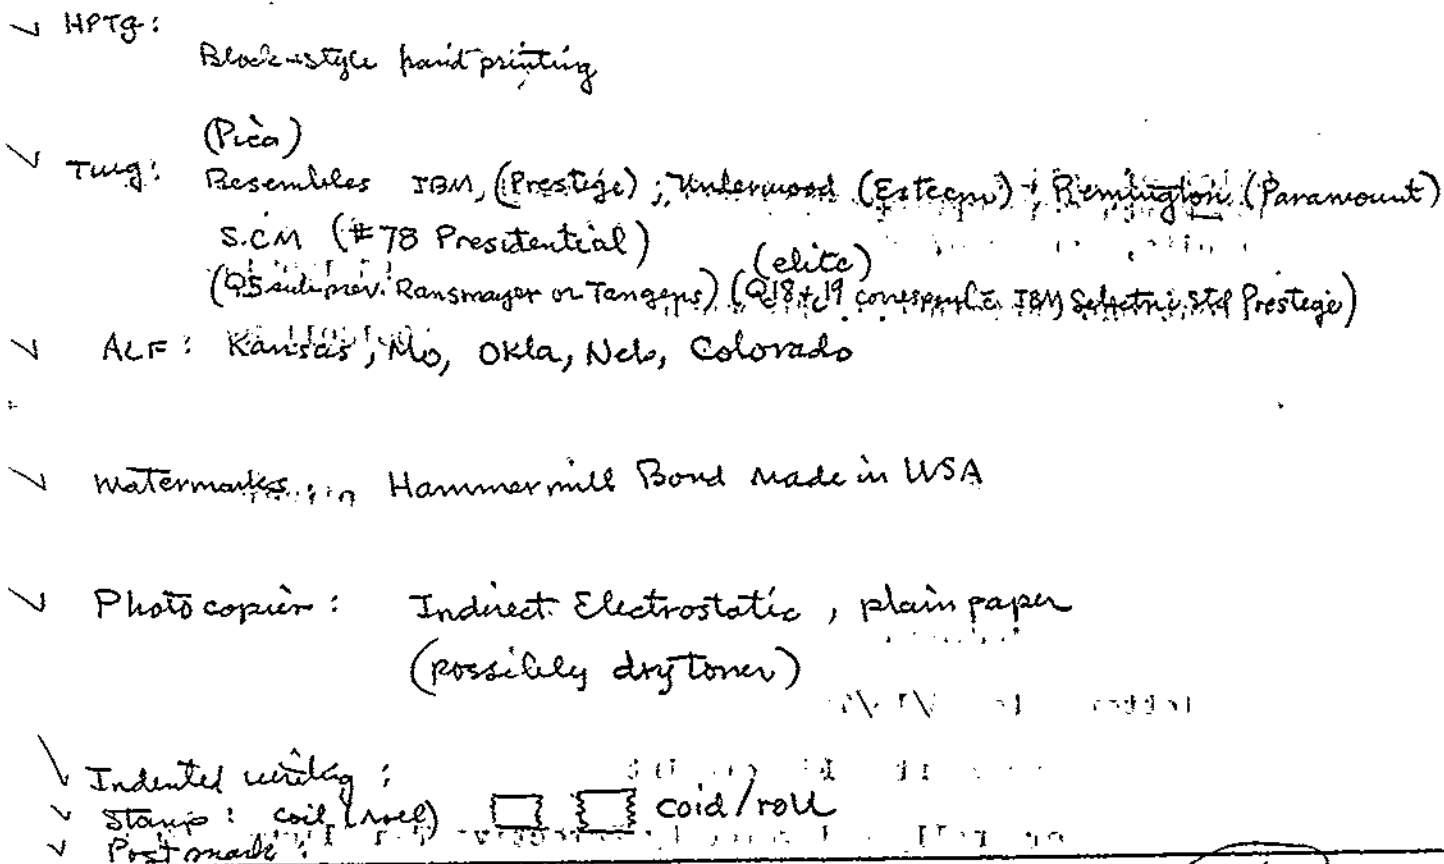 HPTg:
Block-style hand printing
(Pica)
Twg: Resembles IBM, (Prestige); Underwood (Esteem); Remington (Paramount)
S.CM (#78 Presitential)
(elite)
(Q5 sub prev. Ransmayer or Tangens) (Qc18 + c19 correspond c̄ IBM Selectric Std Prestege)
ALF: Kansas, Mo, Okla, Neb, Colorado
Watermarks: Hammermill Bond Made in USA
Photocopier: Indirect Electrostatic, plain paper
(possibly dry toner)
Indented writing:
Stamp: coil (roll) coid/roll
Postmark: